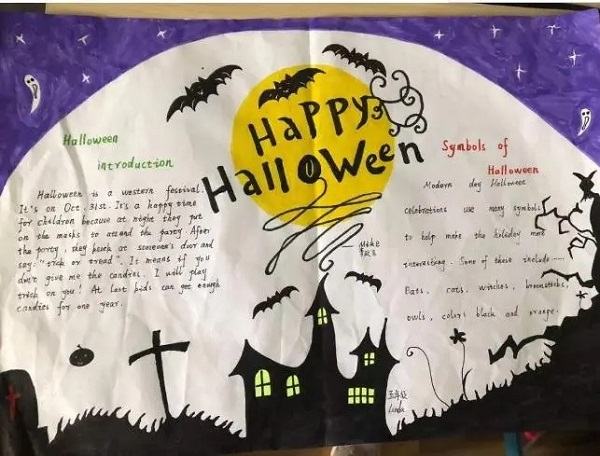 Happy
Halloween
Halloween
introduction
Halloween is a western festival.
It's on Oct. 31st. It's a happy time
for children because at night they put
on the masks to attend the party. After
the party, they knock at someone's door and
say: "trick or tread". It means if you
don't give me the candies. I will play
trick on you! At last kids can get enough
candies for one year.
Symbols of
Halloween
Modern day Halloween
celebrations use many symbols
to help make the holiday more
interesting. Some of these include......
Bats, cats, witches, broomsticks,
owls, colors black and orange.
Make
五年级
Linda